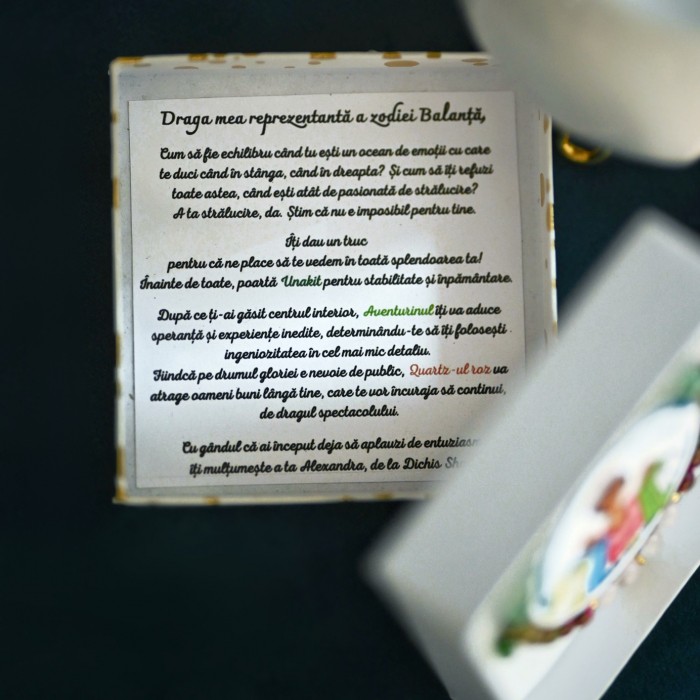 Draga mea reprezentantă a zodiei Balanță,
Cum să fie echilibru când tu ești un ocean de emoții cu care
te duci când în stânga, când în dreapta? Și cum să îți refuzi
toate astea, când ești atât de pasionată de strălucire?
A ta strălucire, da. Știm că nu e imposibil pentru tine.
Îți dau un truc
pentru că ne place să te vedem în toată splendoarea ta!
Înainte de toate, poartă Unakit pentru stabilitate și înpământare.
După ce ți-ai găsit centrul interior, Aventurinul îți va aduce
speranță și experiențe inedite, determinându-te să îți folosești
ingeniozitatea în cel mai mic detaliu.
Fiindcă pe drumul gloriei e nevoie de public, Quartz-ul roz va
atrage oameni buni lângă tine, care te vor încuraja să continui,
de dragul spectacolului.
Cu gândul că ai început deja să aplauzi de
îți mulțumește a ta Alexandra, de la Dichis